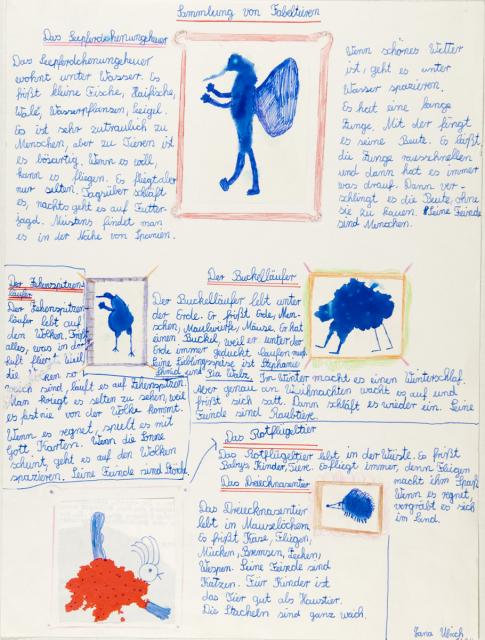 Sammlung von Fabeltieren
Das Seepferdchenungeheuer
Das Seepferdchenungeheuer
wohnt unter Wasser. Es
frißt kleine Fische, Haifische,
Wale, Wasserpflanzen, Seeigel.
Es ist sehr zutraulich zu
Menschen, aber zu Tieren ist
es bösartig. Wenn es will,
kann es fliegen. Es fliegt aber
nur selten. Tagsüber schläft
es, nachts geht es auf Futter-
jagd. Meistens findet man
es in der Nähe von Spanien.
Wenn schönes Wetter
ist, geht es unter
Wasser spazieren.
Es hat eine lange
Zunge. Mit der fängt
es seine Beute. Es läßt
die Zunge rausschnellen
und dann hat es immer
was drauf. Dann ver-
schlingt es die Beute, ohne
sie zu kauen. Seine Feinde
sind Menschen.
Der Zehenspitzen-
läufer
Der Zehenspitzen-
läufer lebt auf
den Wolken. Frißt
alles, was in der
Luft fliegt. Weil
die Wolken so
weich sind, läuft es auf Zehenspitzen.
Man kriegt es selten zu sehen, weil
es fast nie von der Wolke kommt.
Wenn es regnet, spielt es mit
Gott Karten. Wenn die Sonne
scheint, geht es auf den Wolken
spazieren. Seine Feinde sind Störche.
Der Buckelläufer
Der Buckelläufer lebt unter
der Erde. Er frißt Erde, Men-
schen, Maulwürfe, Mäuse. Er hat
einen Buckel, weil er unter der
Erde immer geduckt laufen muß.
Seine Lieblingsspeise ist Stephanie
und Pia Walz. Im Winter macht es einen Winterschlaf.
Aber genau an Weihnachten wacht es auf und
frißt sich satt. Dann schläft es wieder ein. Seine
Feinde sind Raubtiere.
Das Rotflügeltier
Das Rotflügeltier lebt in der Wüste. Es frißt
Babys, Kinder, Tiere. Es fliegt immer, denn Fliegen
macht ihm Spaß.
Wenn es regnet,
vergräbt es sich
im Sand.
Das Dreiecknasentier
Das Dreiecknasentier
lebt in Mauselöchern.
Es frißt Käse, Fliegen,
Mücken, Bremsen, Zecken,
Wespen. Seine Feinde sind
Katzen. Für Kinder ist
das Tier gut als Haustier.
Die Stacheln sind ganz weich.
Jana